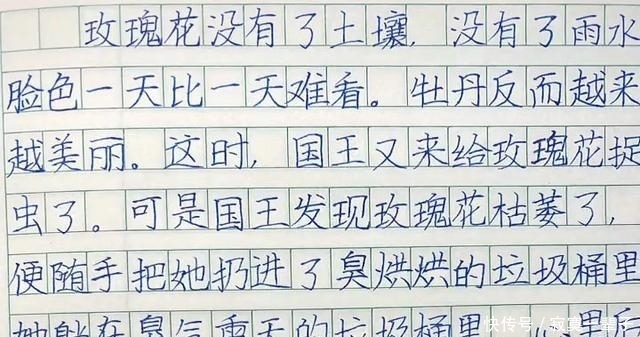 玫瑰花没有了土壤，没有了雨水
脸色一天比一天难看。牡丹反而越来
越美丽。这时，国王又来给玫瑰花捉
虫了。可是国王发现玫瑰花枯萎了，
便随手把她扔进了臭烘烘的垃圾桶里
她躺在臭气熏天的垃圾桶里
快传号/寂寞一辈子